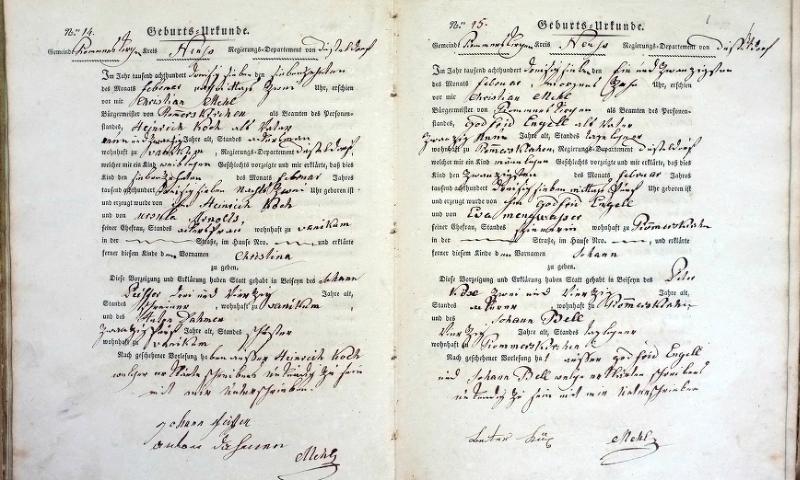 Nro. 14. Geburts-Urkunde.
Gemeinde Rommerskirchen Kreis Neuss Regierungs-Departement von Düsseldorf
Im Jahr tausend achthundert dreisig sieben den siebenzehnten
des Monats Februar nachmittags zwei Uhr, erschien
vor mir Christian Mehl
Bürgermeister von Romerskirchen als Beamten des Personen-
standes, Heinrich Koch als Vater
neun und zwanzig Jahre alt, Standes ackerman
wohnhaft zu vanikum, Regierungs-Departement Düsseldorf
welcher mir ein Kind weiblichen Geschlechts vorzeigte und mir erklärte, daß dies
Kind den siebenzehnten des Monats Februar Jahres
tausend achthundert dreisig sieben Nachts zwei Uhr geboren ist
und erzeugt wurde von ihm Heinrich Koch
und von ursula Arnolts
seiner Ehefrau, Standes ackersfrau wohnhaft zu vanikum
in der Straße, im Hause Nro. und erklärte
ferner diesem Kinde den Vornamen Christina
zu geben.
Diese Vorzeigung und Erklärung haben Statt gehabt in Beiseyn des Johann
drei und vierzig Jahre alt,
Standes schreiner wohnhaft zu vanikum,
und des Anton Dahmen
zwanzig fünf Jahre alt, Standes schuster
wohnhaft zu vanikum
Nach geschehener Vorlesung haben außer Heinrich Koch
welcher erklärte schreibens unkundig zu sein
mit mir unterschrieben.
Johann
anton Dahmen
Mehl
Nro. 15. Geburts-Urkunde.
Gemeinde Rommerskirchen Kreis Neuss Regierungs-Departement von Düsseldorf
Im Jahr tausend achthundert dreisig sieben den Ein und zwanzigsten
des Monats Februar, morgens zehn Uhr, erschien
vor mir Christian Mehl
Bürgermeister von Rommerskirchen als Beamten des Personen-
standes, Godfried Engell als Vater
zwanzig neun Jahre alt, Standes taglohner
wohnhaft zu Romerskirchen, Regierungs-Departement Düsseldorf
welcher mir ein Kind männlichen Geschlechts vorzeigte und mir erklärte, daß dies
Kind den zwanzigsten des Monats Februar Jahres
tausend achthundert dreisig sieben mittags fünf Uhr geboren ist
und erzeugt wurde von ihm Godfried Engell
und von Eva mengwasser
seiner Ehefrau, Standes wohnhaft zu Rommerskirchen
in der Straße, im Hause Nro. und erklärte
ferner diesem Kinde den Vornamen Johann
zu geben.
Diese Vorzeigung und Erklärung haben Statt gehabt in Beiseyn des Peter
zwei und vierzig Jahre alt,
Standes wohnhaft zu Rommerskirchen
und des Johann Bell
vierzig Jahre alt, Standes taglohner
wohnhaft zu Rommerskirchen
Nach geschehener Vorlesung hat außer Godfried Engell
und Johann Bell welche erklärten schreibens
unkundig zu sein mit mir unterschrieben
Mehl